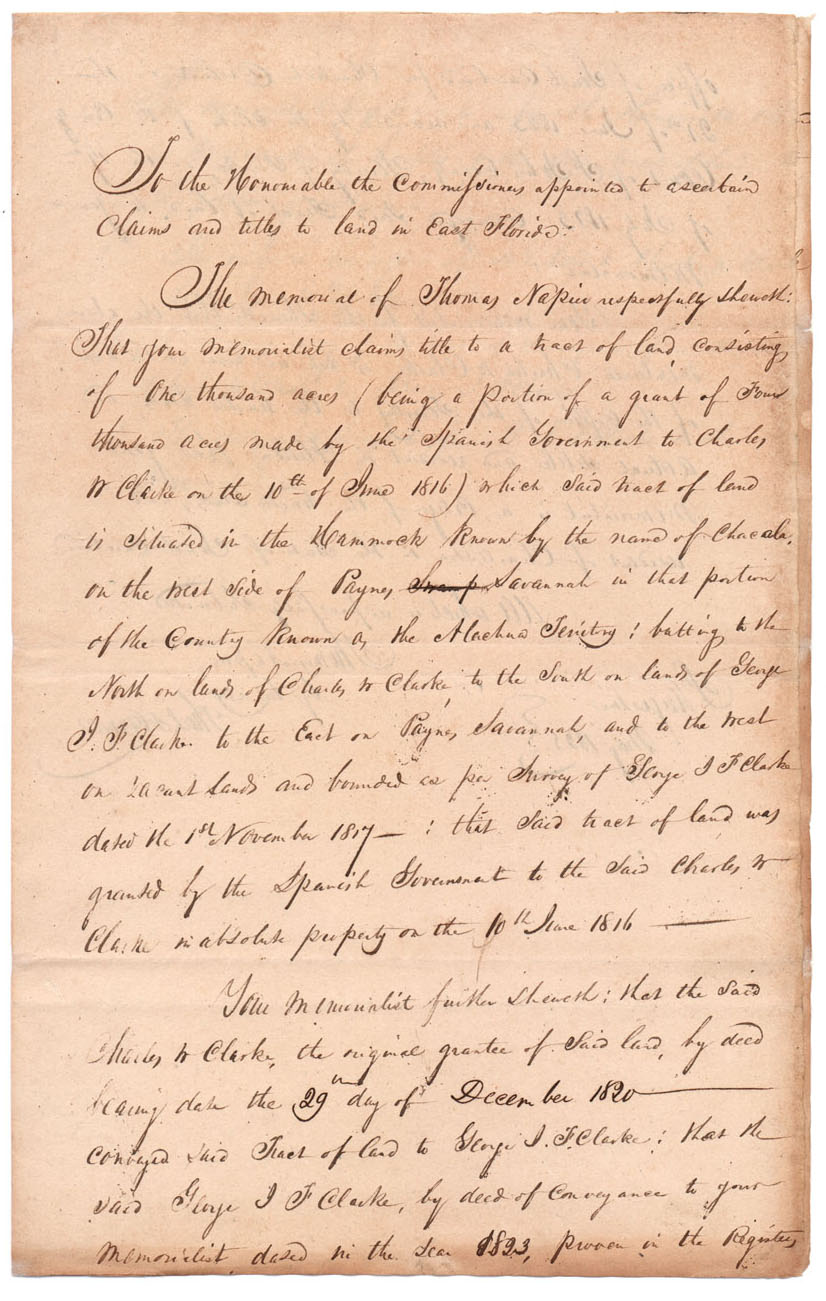 To the Honourable the Commissioners appointed to ascertain
Claims and titles to land in East Florida:
The memorial of Thomas Napier respectfully sheweth:
That your memorialist claims title to a tract of land, consisting
of One thousand acres (being a portion of a grant of Four
thousand acres made by the Spanish Government to Charles
W Clarke on the 10th of June 1816) which said tract of land
is situated in the Hammock known by the name of Chacala,
on the west side of Paynes Swamp Savannah in that portion
of the Country known as the Alachua Teritory: butting to the
North on lands of Charles W Clarke, to the South on lands of George
J. F. Clarke. to the East on Paynes Savannah, and to the west
on vacant Lands and bounded as per Survey of George J F Clarke
dated the 1st November 1817— : that said tract of land was
granted by the Spanish Government to the said Charles W
Clarke in absolute property on the 10th June 1816 —
Your Memorialist further sheweth: that the said
Charles W Clarke, the original grantee of said land, by deed
bearing date the 29th day of December 1820—
conveyed said Tract of land to George J. F. Clarke: that the
said George J F Clarke, by deed of conveyance to your
Memorialist, dated in the year 1823, proven in the Registers